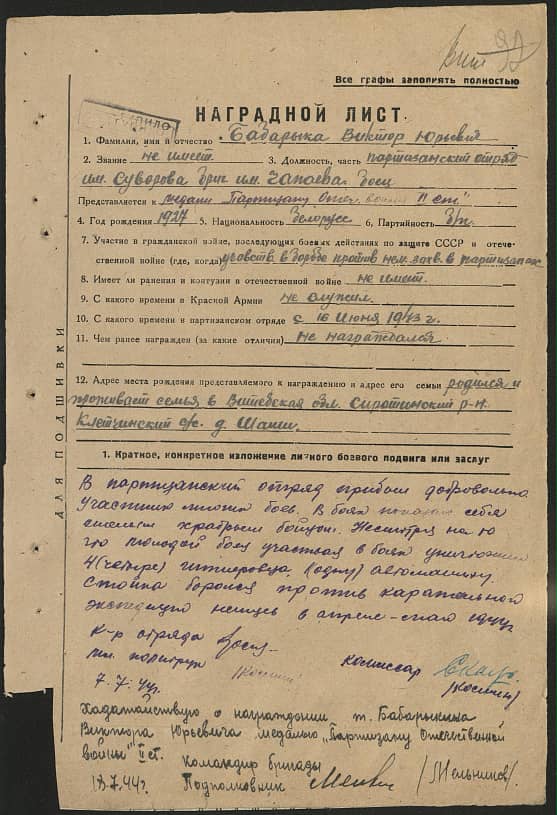 Вит
Все графы заполнять полностью
НАГРАДНОЙ ЛИСТ.
1. Фамилия, имя и отчество Бабарыка Виктор Юрьевич
2. Звание не имеет 3. Должность, часть партизанский отряд
им. Суворова бриг им. Чапаева. боец
Представляется к медали "Партизану Отеч. войны" II ст.
4. Год рождения 1927 5. Национальность Белорусс 6. Партийность б/п.
7. Участие в гражданской войне, последующих боевых действиях по защите СССР и отече-
ственной войне (где, когда) участв. в борьбе против нем. захв. в партизанах
8. Имеет ли ранения и контузии в отечественной войне не имеет.
9. С какого времени в Красной Армии не служил.
10. С какого времени в партизанском отряде с 16 июня 1943 г.
11. Чем ранее награжден (за какие отличия) не награждался
12. Адрес места рождения представляемого к награждению и адрес его семьи родился и
проживает семья в Витебская обл. Сиротинский р-н.
с/с. д. Шаши.
ДЛЯ ПОДШИВКИ
1. Краткое, конкретное изложение личного боевого подвига или заслуг
В партизанский отряд прибыл добровольно
Участник многих боев. В боях показал себя
смелым храбрым бойцом. Несмотря на то
что молодой боец участвуя в боях уничтожил
4 (четыре) гитлеровца, 1 (одну) автомашину.
Стойко боролся против карательной
экспедиции немцев в апреле-мае
К-р отряда
мл. политрук
комиссар
7.7.44г.
Ходатайствую о награждении т. Бабарыкина
Виктора Юрьевича медалью "Партизану Отечественной
войны" II ст.
командир бригады
18.7.44г. Подполковник /Мельников/